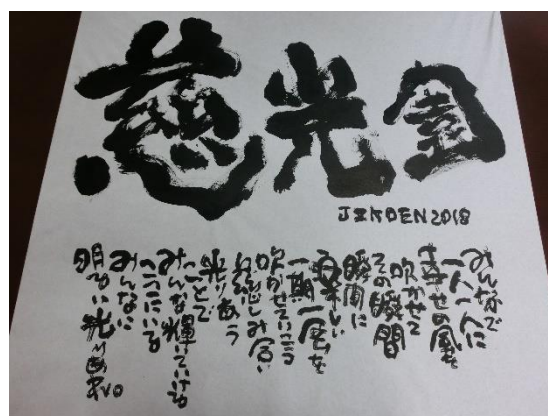 慈光園
JIKOEN 2018
みんなで
一人一人に
幸せの風を
吹かせて
その瞬間
瞬間に
一期一風を
吹かせていこう
光りあう
ことで
みんな輝いている
ここにいる
みんなに
明るい光りあれ